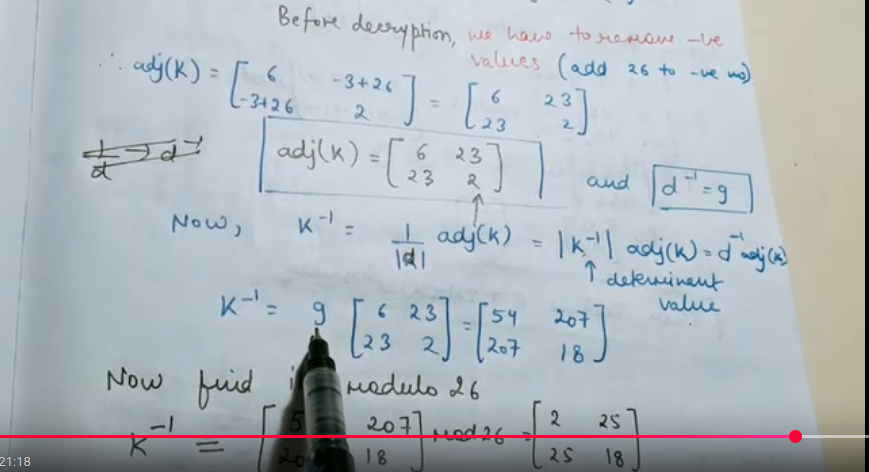 Before decryption, we have to remove -ve
values (add 26 to -ve no)
∴ adj(K) = [ 6 -3+26 ] = [ 6 23 ]
[ -3+26 2 ] [ 23 2 ]
1/d → d⁻¹
adj(K) = [ 6 23 ]
[ 23 2 ]
and d⁻¹ = 9
Now, K⁻¹ = 1/|d| adj(K) = |K⁻¹| adj(K) = d⁻¹ adj(K)
↑ determinant
value
K⁻¹ = 9 [ 6 23 ] = [ 54 207 ]
[ 23 2 ] [ 207 18 ]
Now find modulo 26
K⁻¹ = [ 5 207 ] mod 26 = [ 2 25 ]
[ 18 ] [ 25 18 ]
21:18